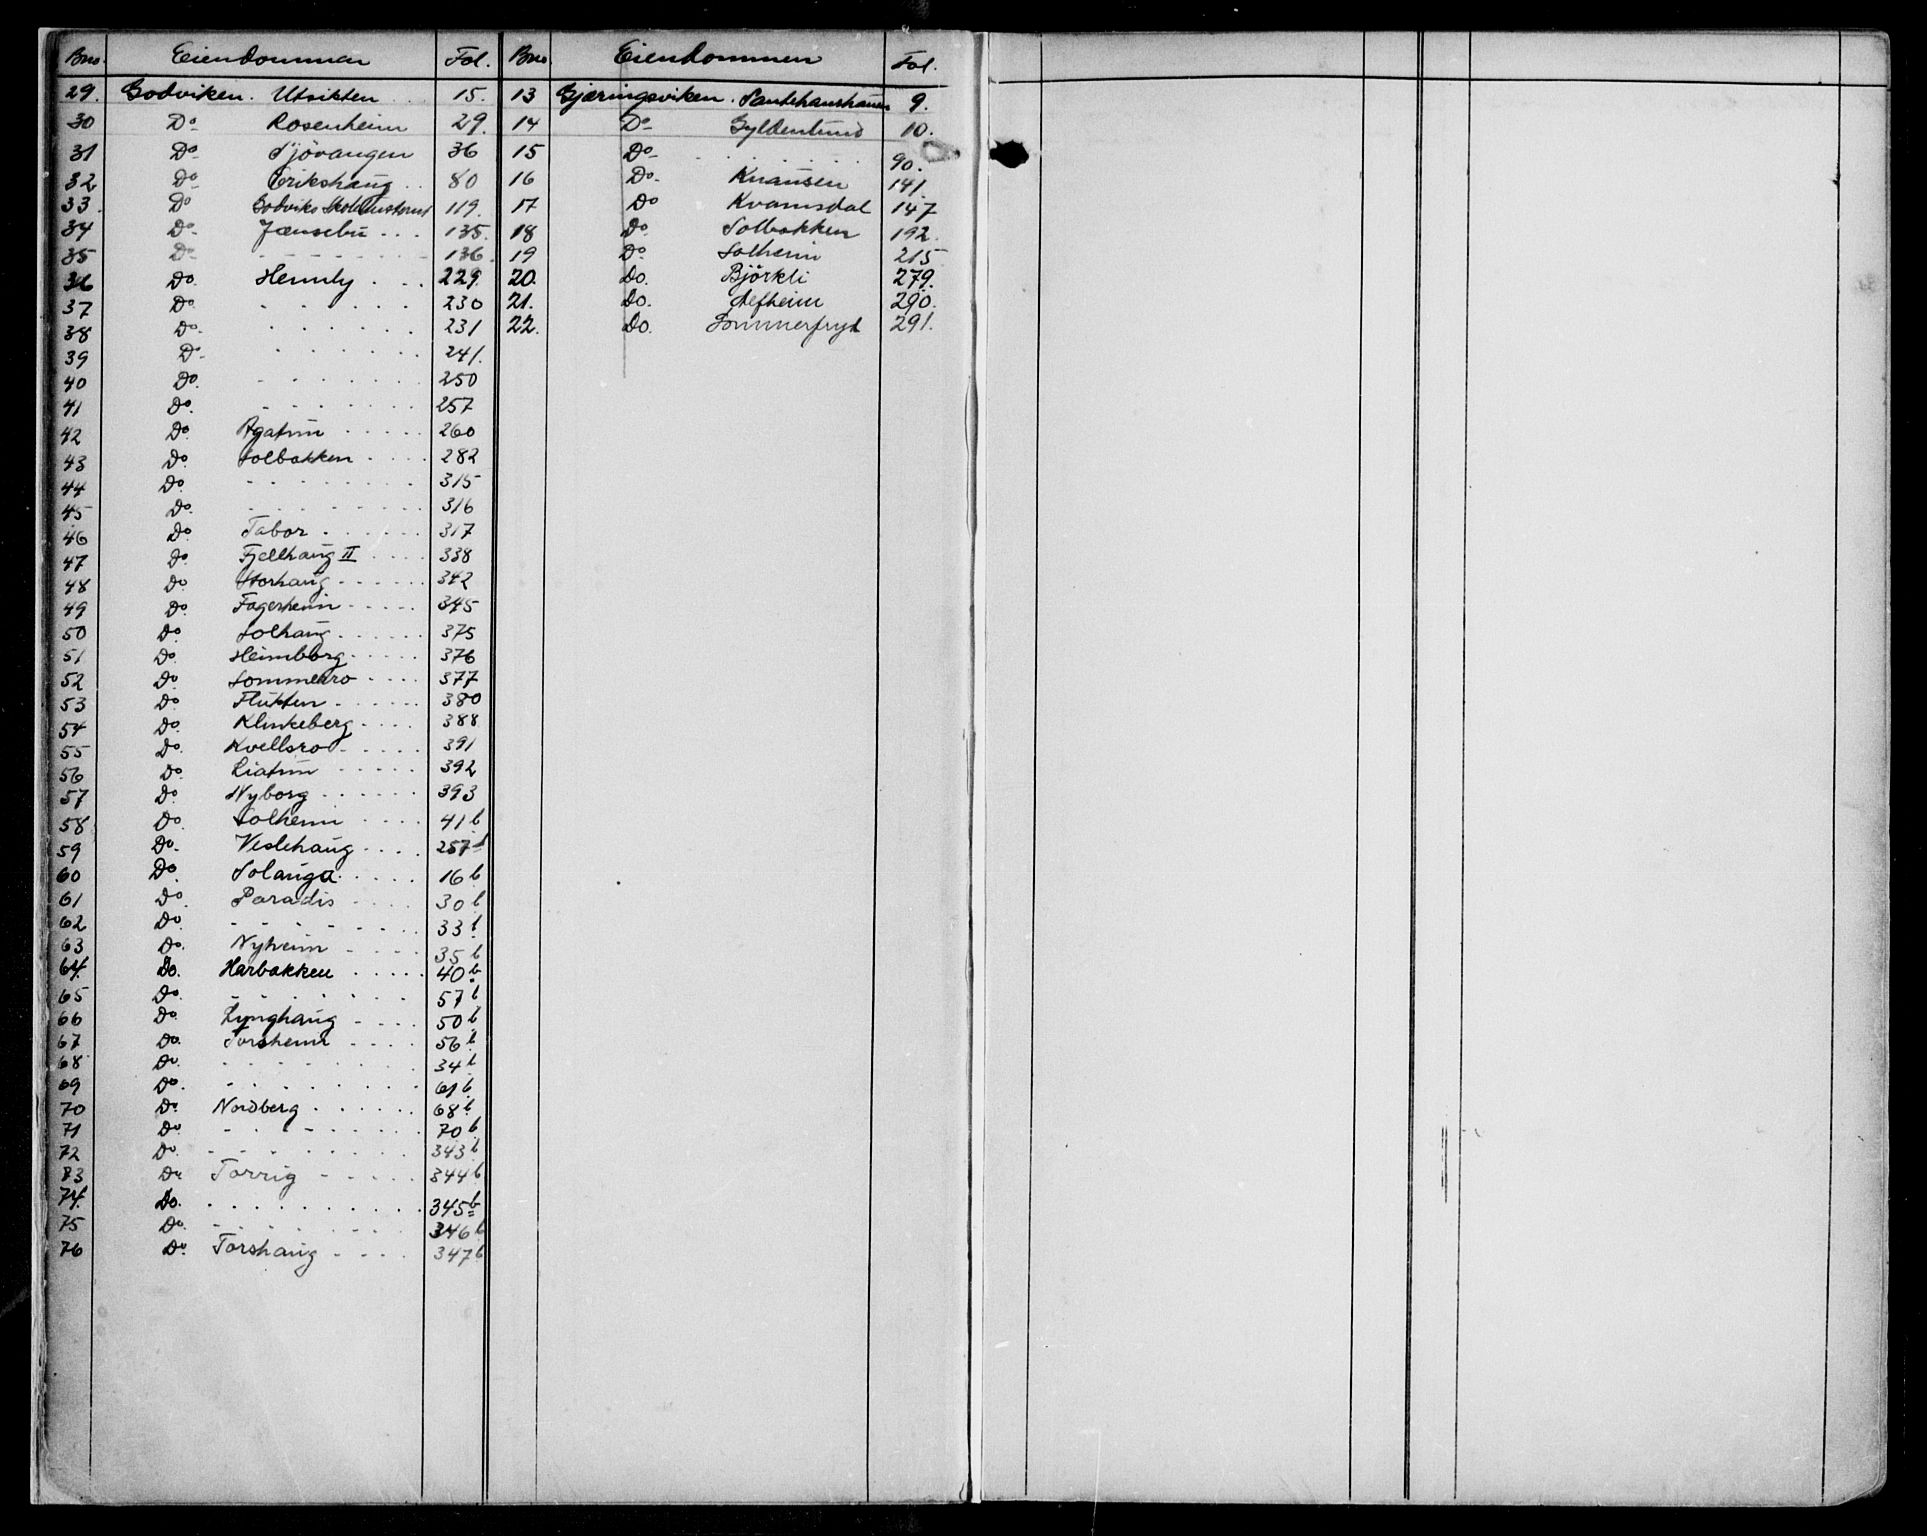 Bno. Eiendommen Fol.
29. Godviken. Utsikten 15.
30 Do Rosenheim 29.
31 Do Sjövangen 36
32 Do Erikshaug 80
33. Do Godviks 119.
34 Do Jænsebu 135.
35 Do 136.
36 Do. Heimly 229.
37 Do 230
38 Do. 231
39 Do 241.
40 Do. 250
41 Do. 257
42 Do. Agatun 260
43 Do. Solbakken 282
44 Do. 315
45 Do. 316
46 Do. Tabor 317
47 Do. Fjellhaug II 338
48 Do. Storhaug 342
49 Do. Fagerheim 345
50 Do. Solhaug 375
51 Do. Heimborg 376
52 Do. Sommerro 377
53 Do. Flukten 380
54 Do. Klinkeberg 388
55 Do. Kvellsro 391
56 Do. Liatun 392
57 Do. Nyborg 393
58 Do. Solheim 41 b
59 Do. Veslehaug 257
60 Do. Solauga 16 b
61 Do. Paradis 30 b
62 Do. 33 b
63 Do. Nyheim 35 b
64. Do. Harbakken 40 b
65 Do. 57 b
66 Do. Lynghaug 50 b
67 Do. Torsheim 56 b
68 Do. 34 b
69 Do. 61 b
70 Do. Nordberg 68 b
71 Do. 70 b
72 Do. 343 b
73 Do. Torrig 344 b
74. Do. 345 b
75 Do. 346 b
76 Do. Torshaug 347 b
Bno. Eiendommen Fol.
13 Gjæringsviken. 9.
14 Do Gyldenlund 10.
15 Do 90.
16 Do. Knausen 141.
17 Do Kvamsdal 147
18 Do. Solbakken 192.
19 Do. Solheim 215
20. Do. Björkli 279.
21. Do. Alfheim 290.
22. Do. Sommerfryd 291.